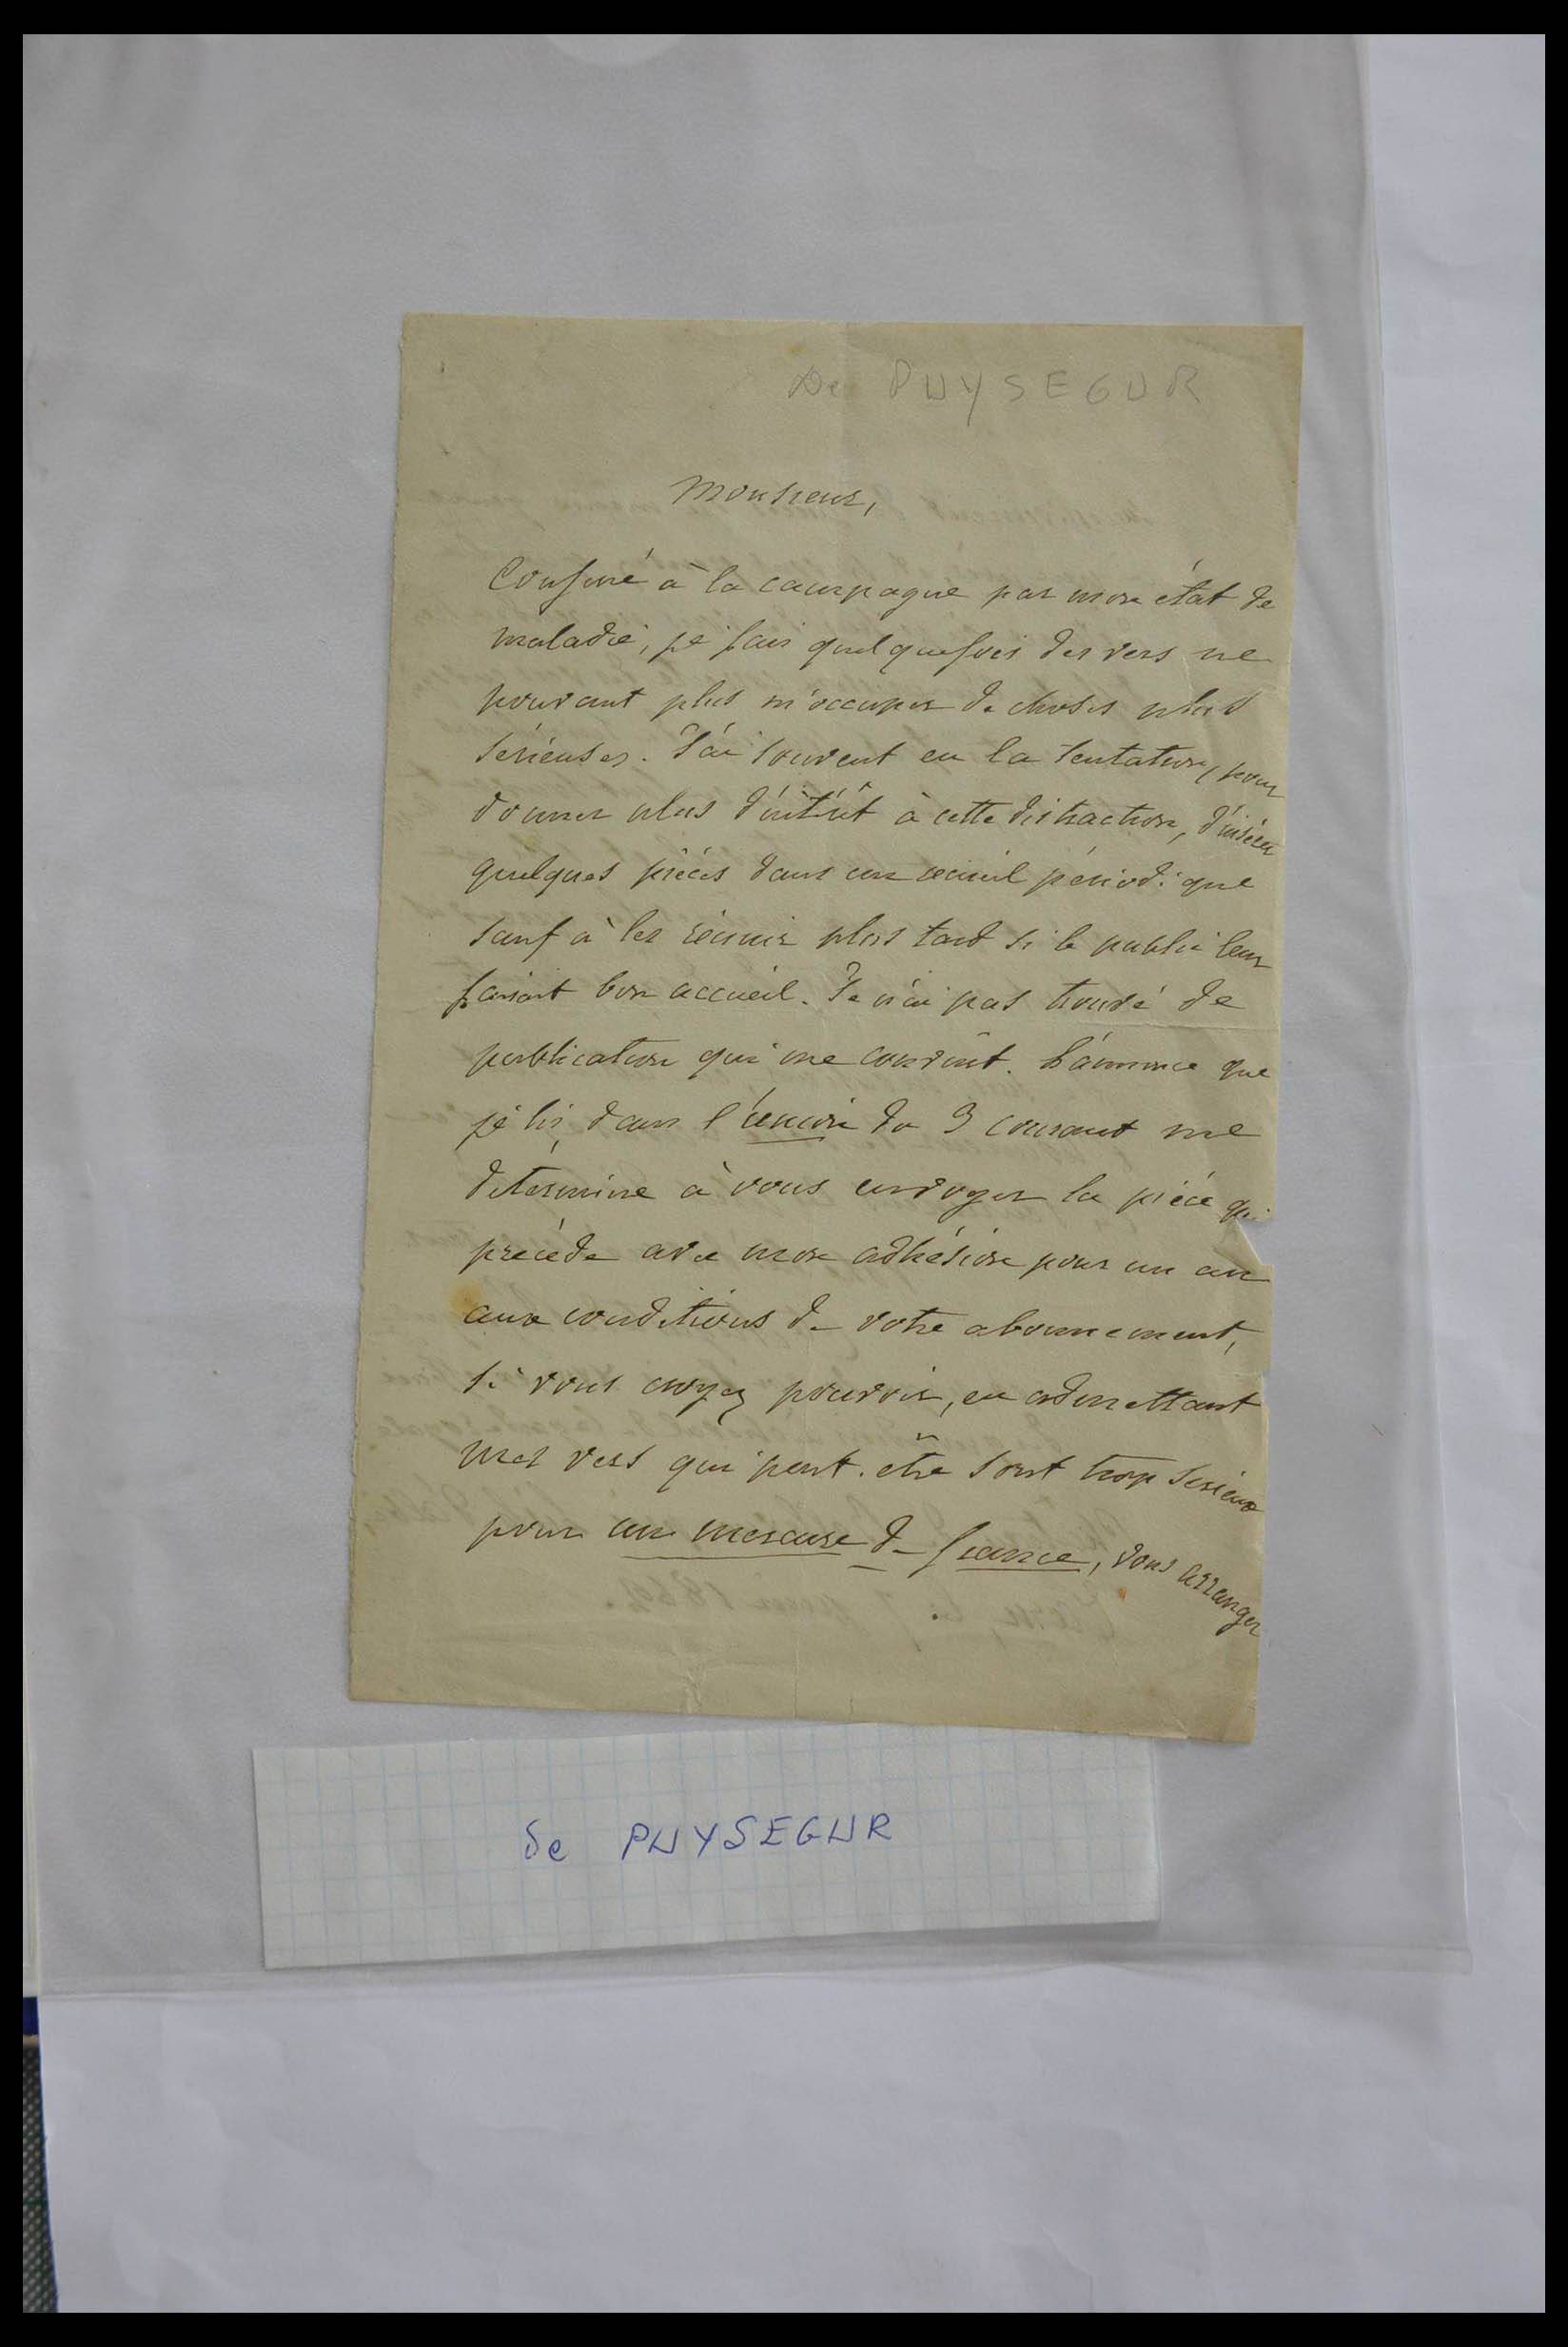 De PUYSEGUR
Monsieur,
Confiné à la campagne par mon état de
maladie, je fais quelquefois des vers ne
pouvant plus m'occuper de choses plus
sérieuses. J'ai souvent eu la tentation, pour
donner plus d'intérêt à cette distraction, d'insérer
quelques pièces dans un recueil périodique
sauf à les réunir plus tard si le public leur
faisait bon accueil. Je n'ai pas trouvé de
publication qui me convint. L'annonce que
je lis, dans l'union du 3 courant me
détermine à vous envoyer la pièce qui
précède avec mon adhésion pour un an
aux conditions de votre abonnement,
si vous croyez pouvoir, en admettant
mes vers qui peut-être sont trop sérieux
pour un mercure de france, vous arranger
de PUYSEGUR